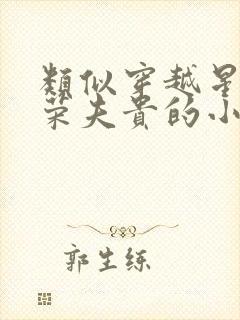 類似穿越星
荣夫貴的小
郭生练